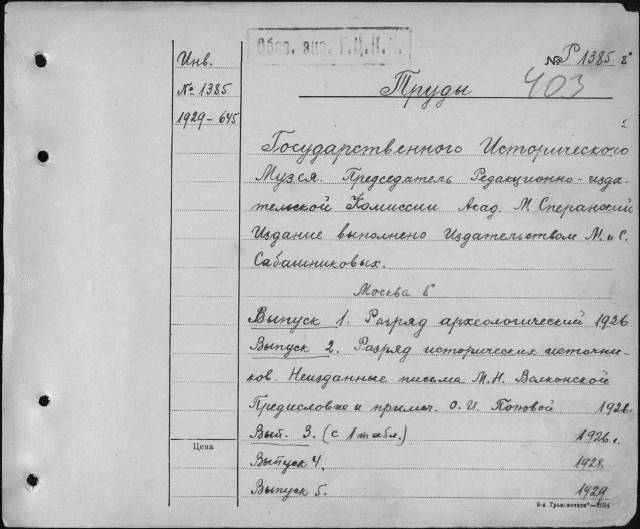 Обяз. экз. Г.Ц.К.П.
Инв.
№ 1385
1929-645
№ Р 1385 8°
403
Труды
Государственного Исторического
Музея. Председатель Редакционно-изда-
тельской Комиссии Акад. М. Сперанский
Издание выполнено Издательством М. и С.
Сабашниковых.
Москва 8°
Выпуск 1. Разряд археологический 1926
Выпуск 2. Разряд исторических источни-
ков. Неизданные письма М. Н. Волконской
Предисловие и примеч. О. И. Поповой 1926г.
Вып. 3. (с 1 табл.) 1926 г.
Цена
Выпуск 4. 1928
Выпуск 5. 1929